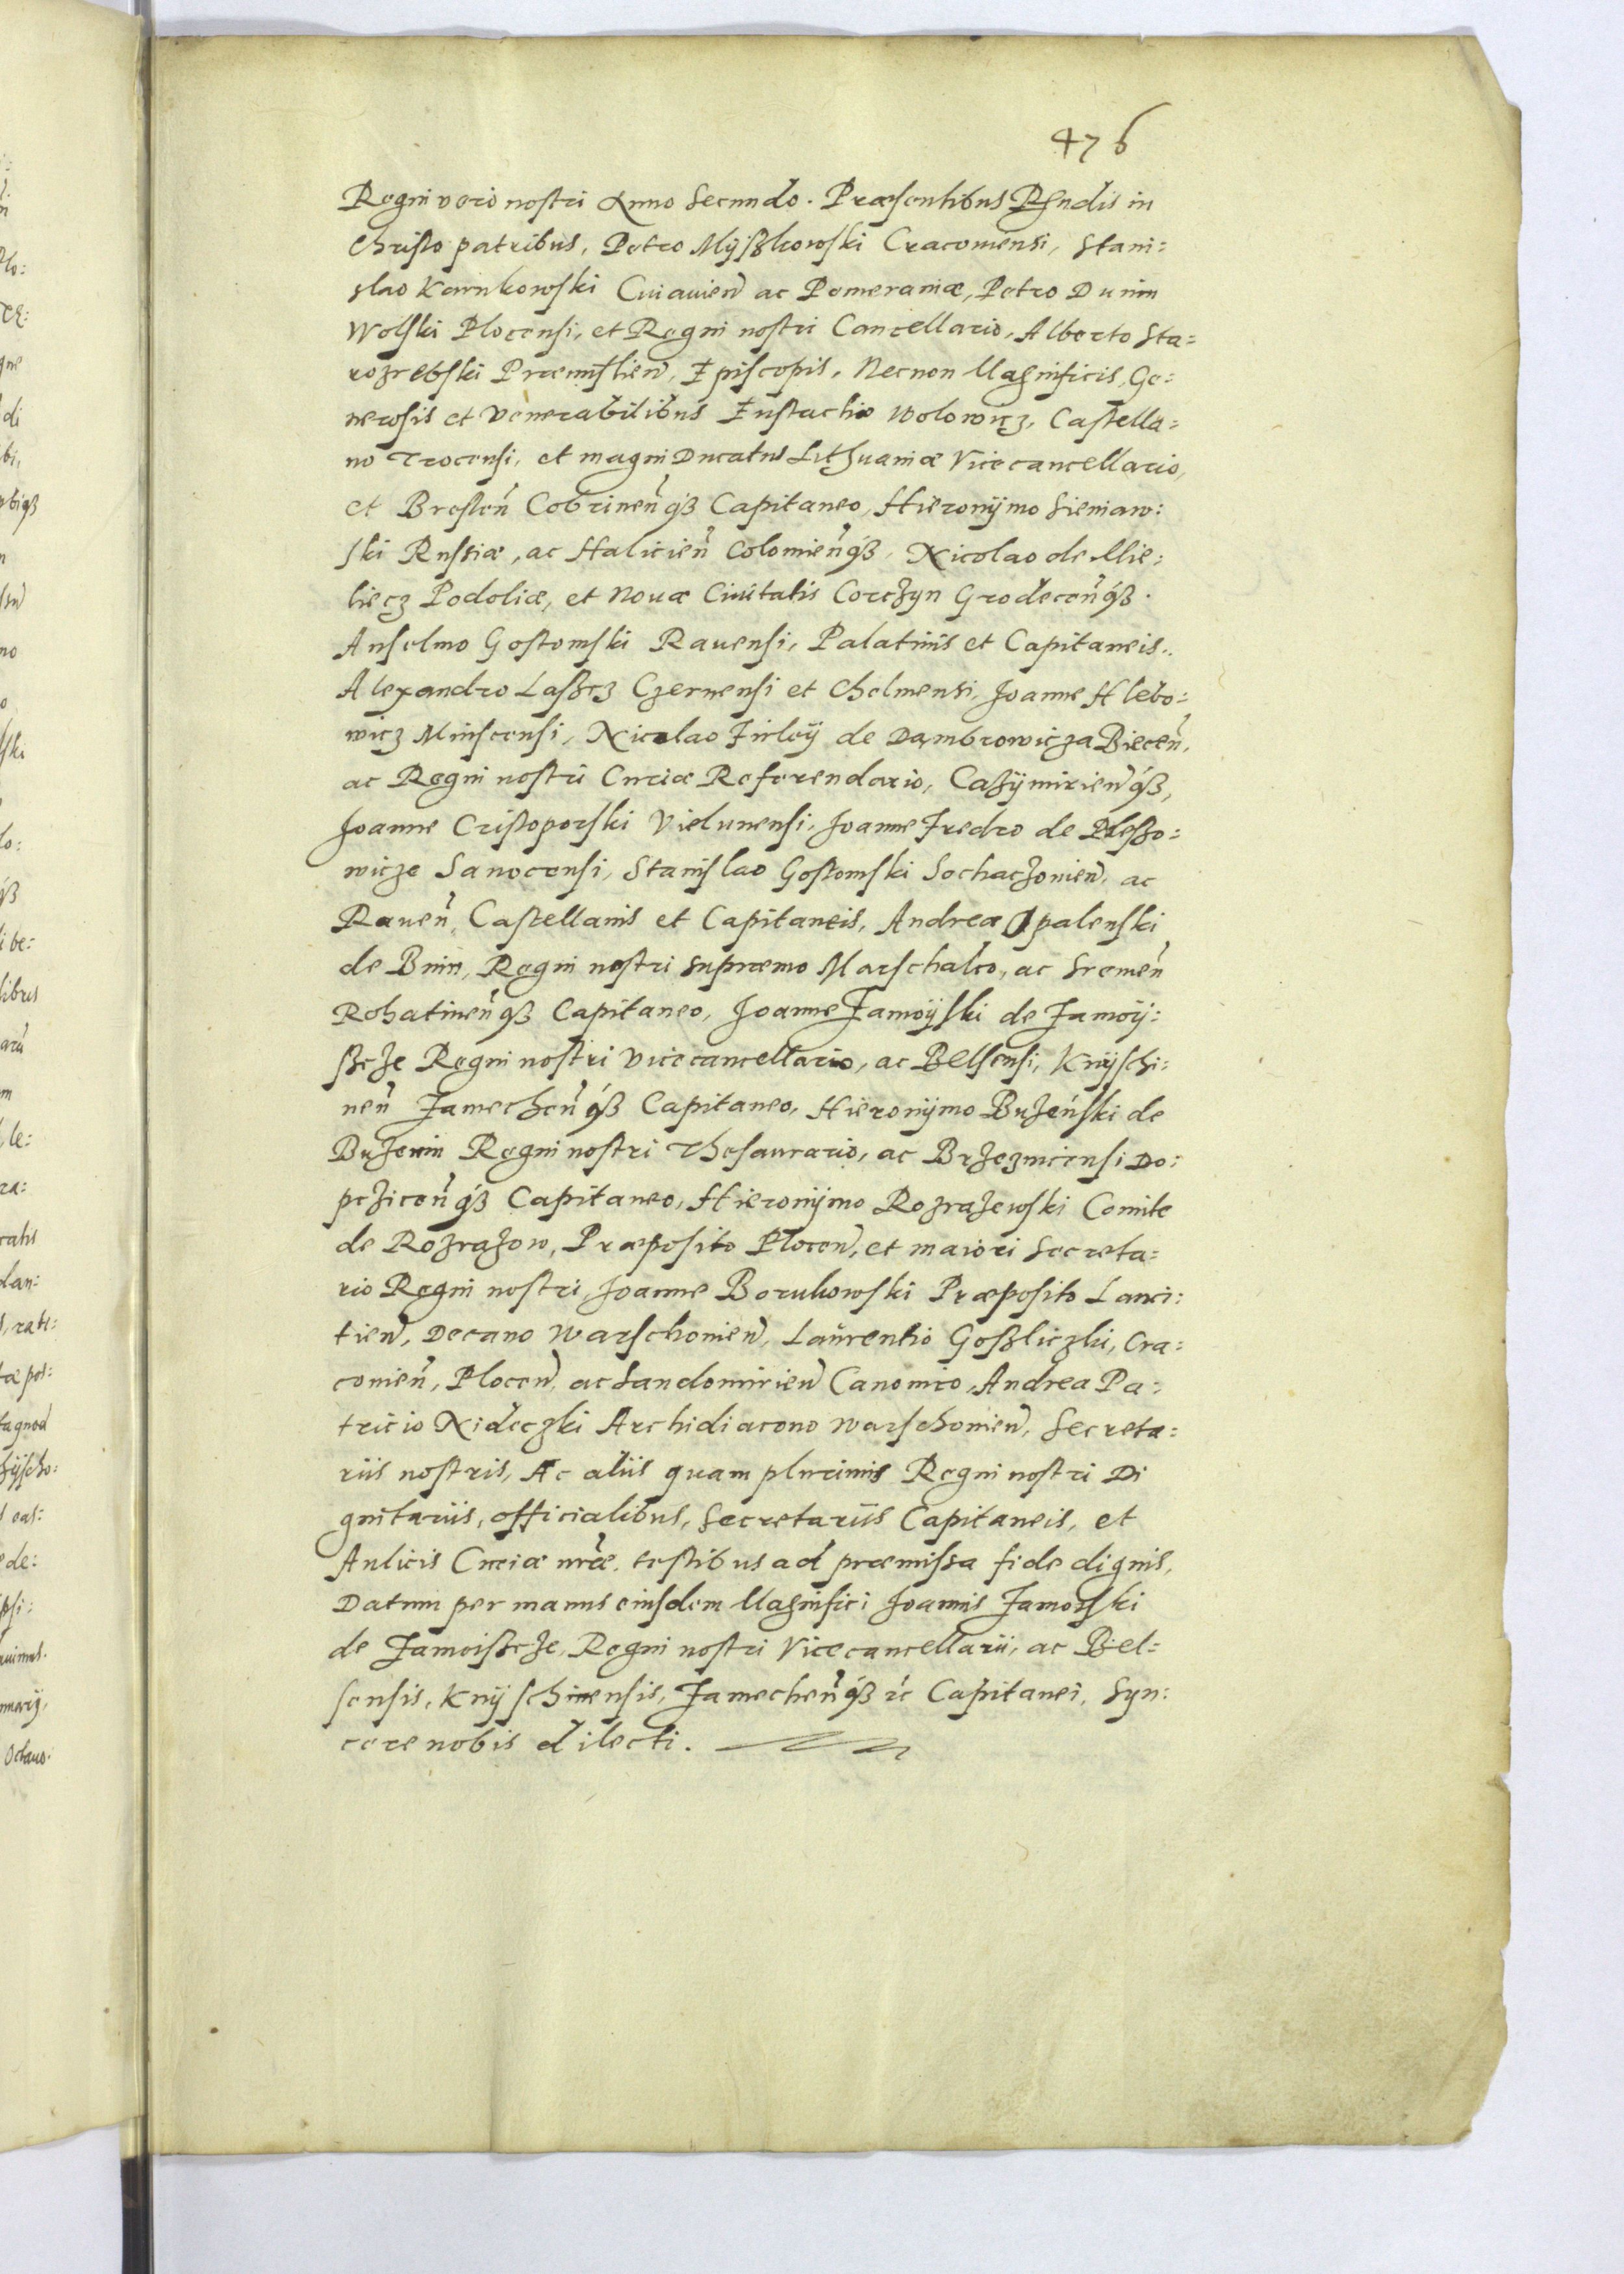 476
Regni vero nostri Anno Secundo. Præsentibus Rñdis in
Christo patribus, Petro Mÿszkowski Cracouiensi, Stani:
slao Karnkowski Cuiauieñ ac Pomeraniæ, Petro Dunin
Wolski Plocensi, et Regni nostri Cancellario, Alberto Sta=
rozrebski Præmislieñ, Episcopis, Necnon Magnificis, Ge:
nerosis et Venerabilibus Eustachio Wolowicz, Castella=
no Trocensi, et magni Ducatus Lithuaniæ Vicecancellario,
et Bresteñ Cobrineñqз Capitaneo, Hieronÿmo Sieniaw:
ski Russiæ, ac Halicieñ Colomieñqз, Nicolao de Mie:
liecz Podoliæ, et Nouæ Ciuitatis Corczyn Grodeceñqз.
Anselmo Gostomski Rauensi, Palatinis et Capitaneis.
Alexandro Laszcz Czernensi et Chelmensi, Joanne Hlebo:
wicz Minscensi, Nicolao Firleÿ de Dambrowicza Bieceñ,
ac Regni nostri Curiæ Referendario, Cazÿmirieñqз,
Joanne Cristoporski Vielunensi, Joanne Fredro de Pleszo:
wicze Sanocensi, Stanislao Gostomski Sochaczouieñ, ac
Raueñ, Castellanis et Capitaneis, Andrea Opalenski
de Bnin, Regni nostri supræmo Marschalco, ac Sremeñ
Rohatineñqз Capitaneo, Joanne Zamoÿski de Zamoÿ:
szcze Regni nostri Vicecancellario, ac Belsensi, Knÿschi:
neñ Zamecheñqз Capitaneo, Hieronÿmo Buzeński de
Buzenin Regni nostri Thesaurario, ac Brzeznicensi Do:
pcziceñqз Capitaneo, Hieronÿmo Rozrazewski Comite
de Rozrazow, Præposito Ploceñ, et maiori Secreta=
rio Regni nostri, Joanne Borukowski Præposito Lanci:
tieñ, Decano Warschouieñ, Laurentio Goszliczki, Cra=
couieñ, Ploceñ, ac Sandomirieñ Canonico, Andrea Pa:
tricio Nideczki Archidiacono Warschouieñ, Secreta=
riis nostris, Ac aliis quam plurimis Regni nostri Di
gnitariis, officialibus, Secretariis Capitaneis, et
Aulicis Curiæ nr̃æ. testibus ad præmissa fide dignis,
Datum per manus eiusdem Magnifici Joannis Zamoiski
de Zamoiszcze, Regni nostri Vicecancellarii, ac Bel=
sensis, Knÿschinensis, Zamecheñqз ꝛc Capitanei, Syn:
cere nobis dilecti.